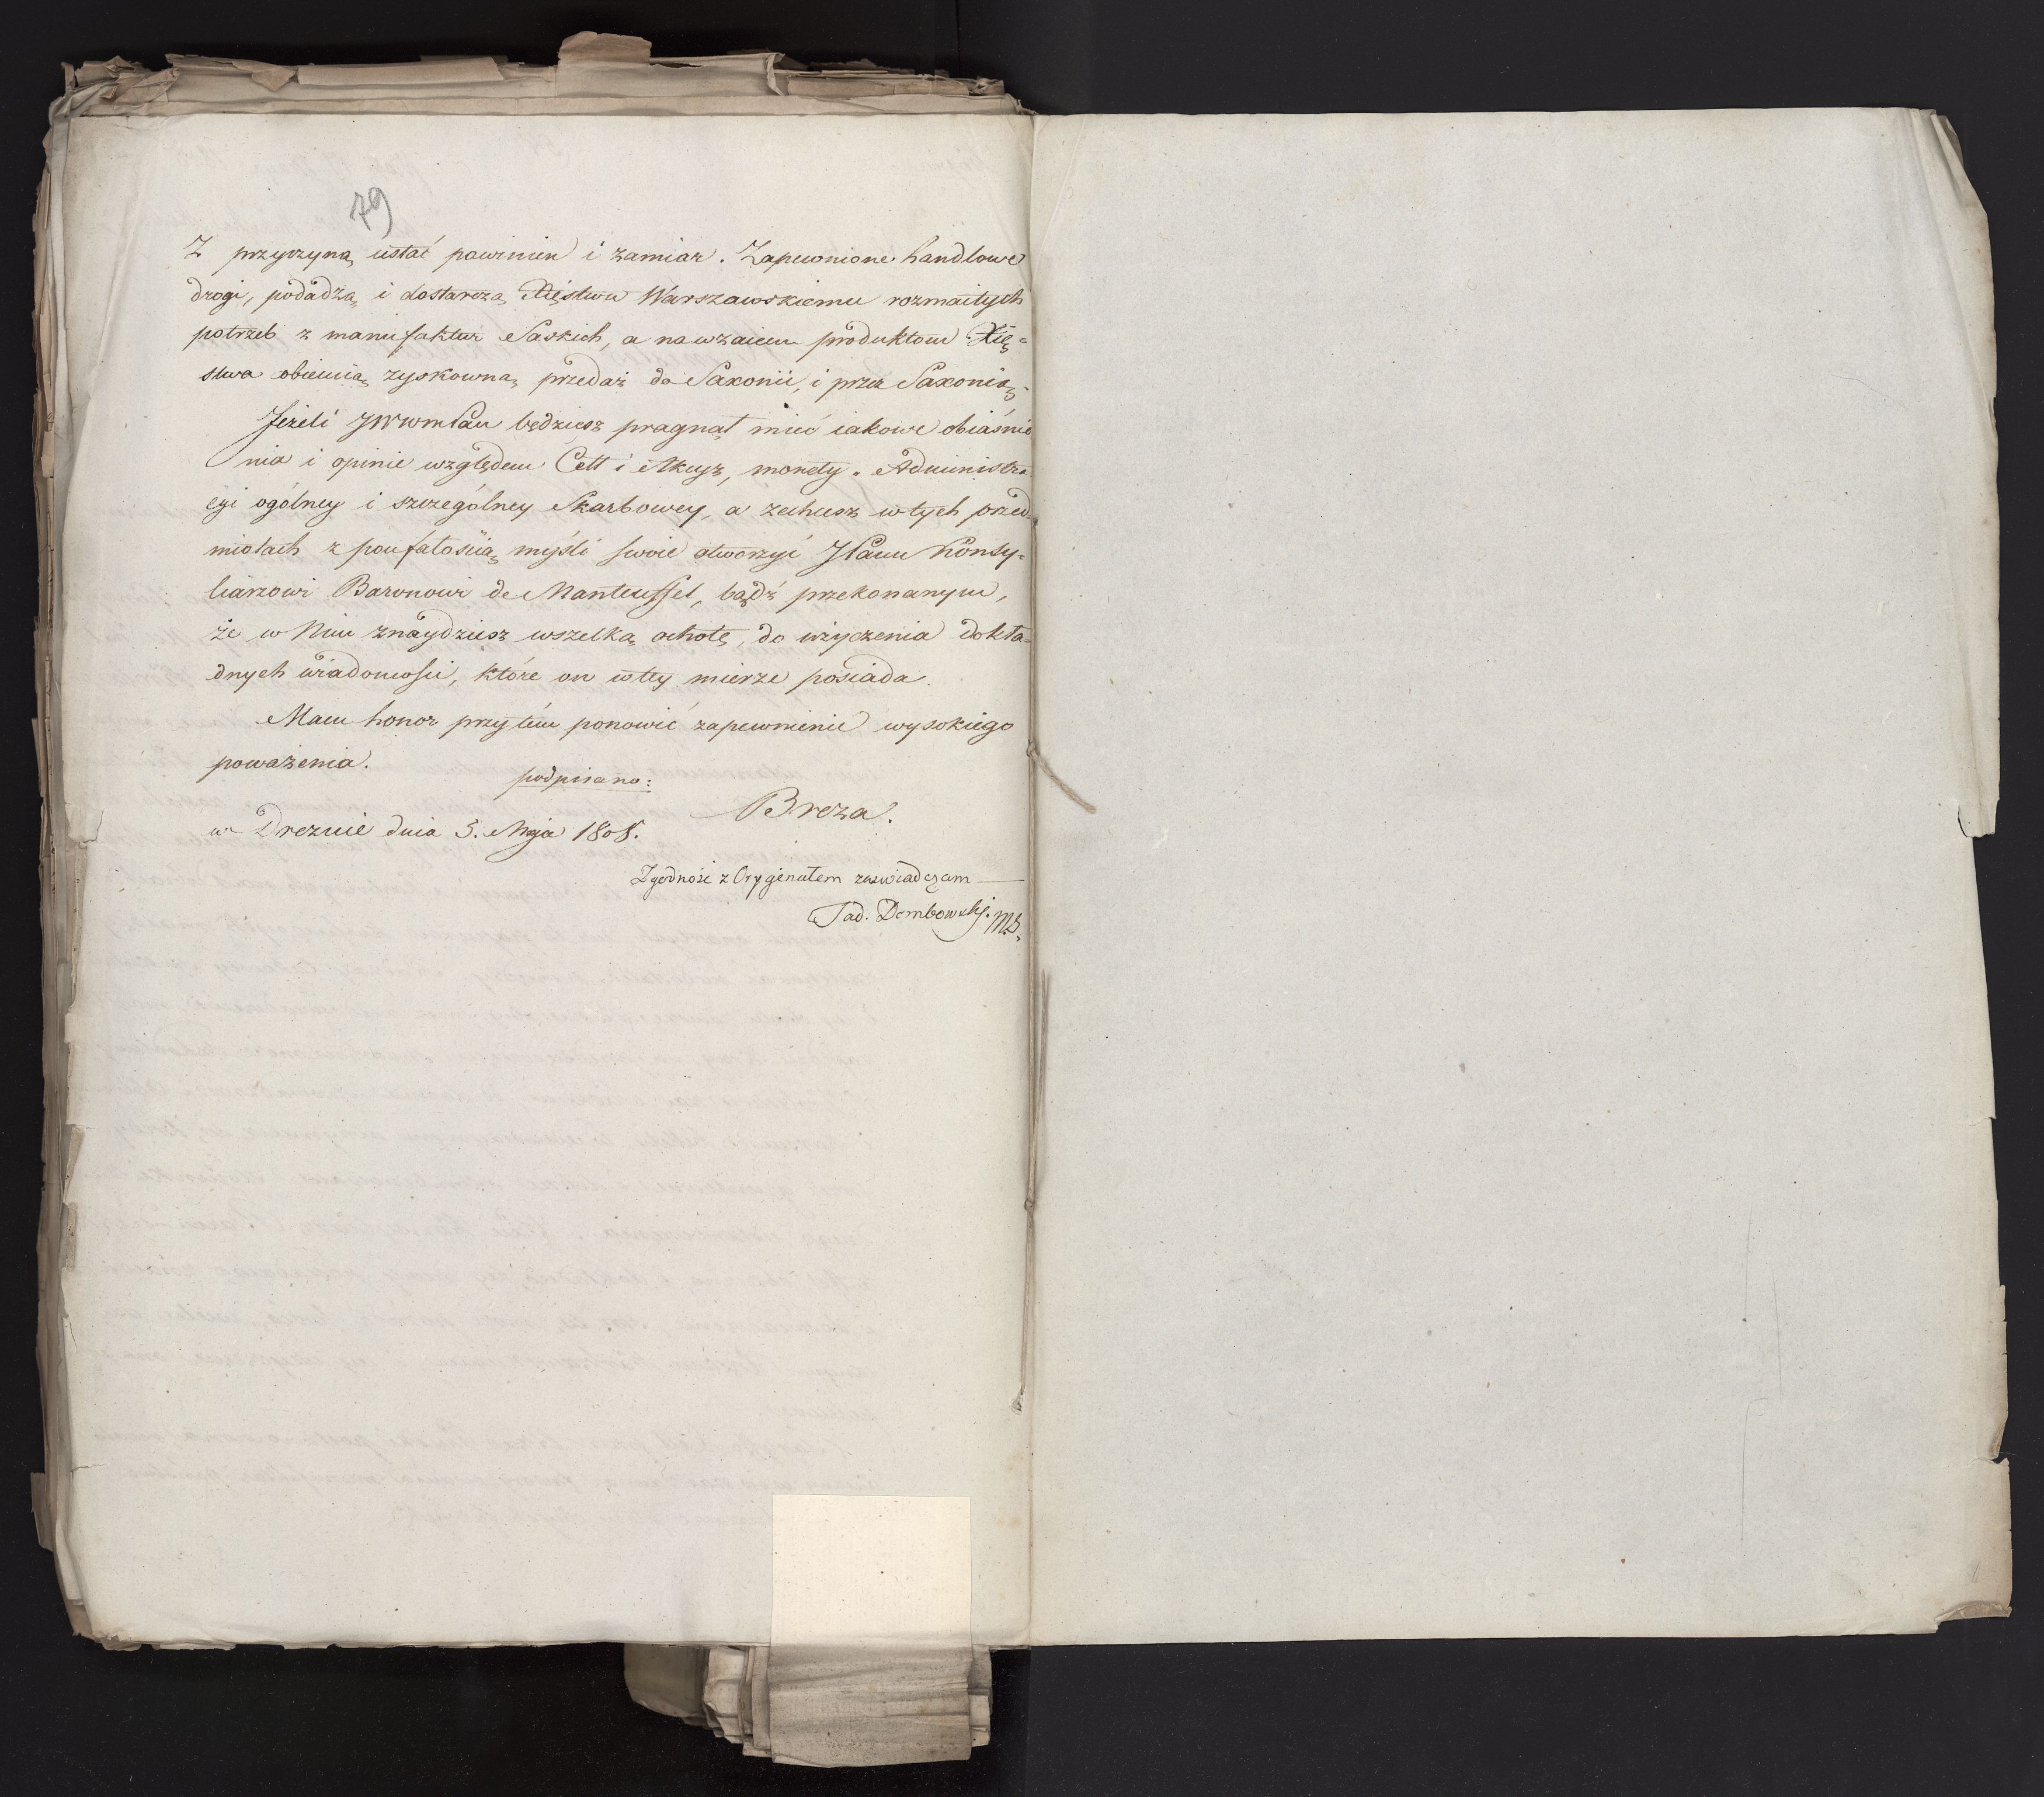 79
Z przyczyną ustać powinien i zamiar. Zapewnione handlowe
drogi, podadzą i dostarczą Xięstwu Warszawskiemu rozmaitych
potrzeb z manufaktur Saskich, a nawzaiem produktom Xię=
stwa obiecuią zyskowną przedaż do Saxonii, i przez Saxonią.
Jeżeli JWWmPan będziesz pragnął mieć iakowe obiaśnie
nia i opinie względem Cełł i Akcyz, monety, Administra
cyi ogólney i szczególney Skarbowey, a zechcesz w tych przed
miotach z poufałością myśli swoie otworzyć JPanu Konsy=
liarzowi Baronowi de Manteuffel, bądź przekonanym,
że w Nim znaydziesz wszelką ochotę, do użyczenia dokła=
dnych wiadomości, które on w tey mierze posiada.
Mam honor przytém ponowić zapewnienie wysokiego
poważenia.
podpisano:
Breza.
w Dreznie dnia 3. Maja 1808.
Zgodność z Oryginałem zaswiadczam
Tad. Dembowski. MS.